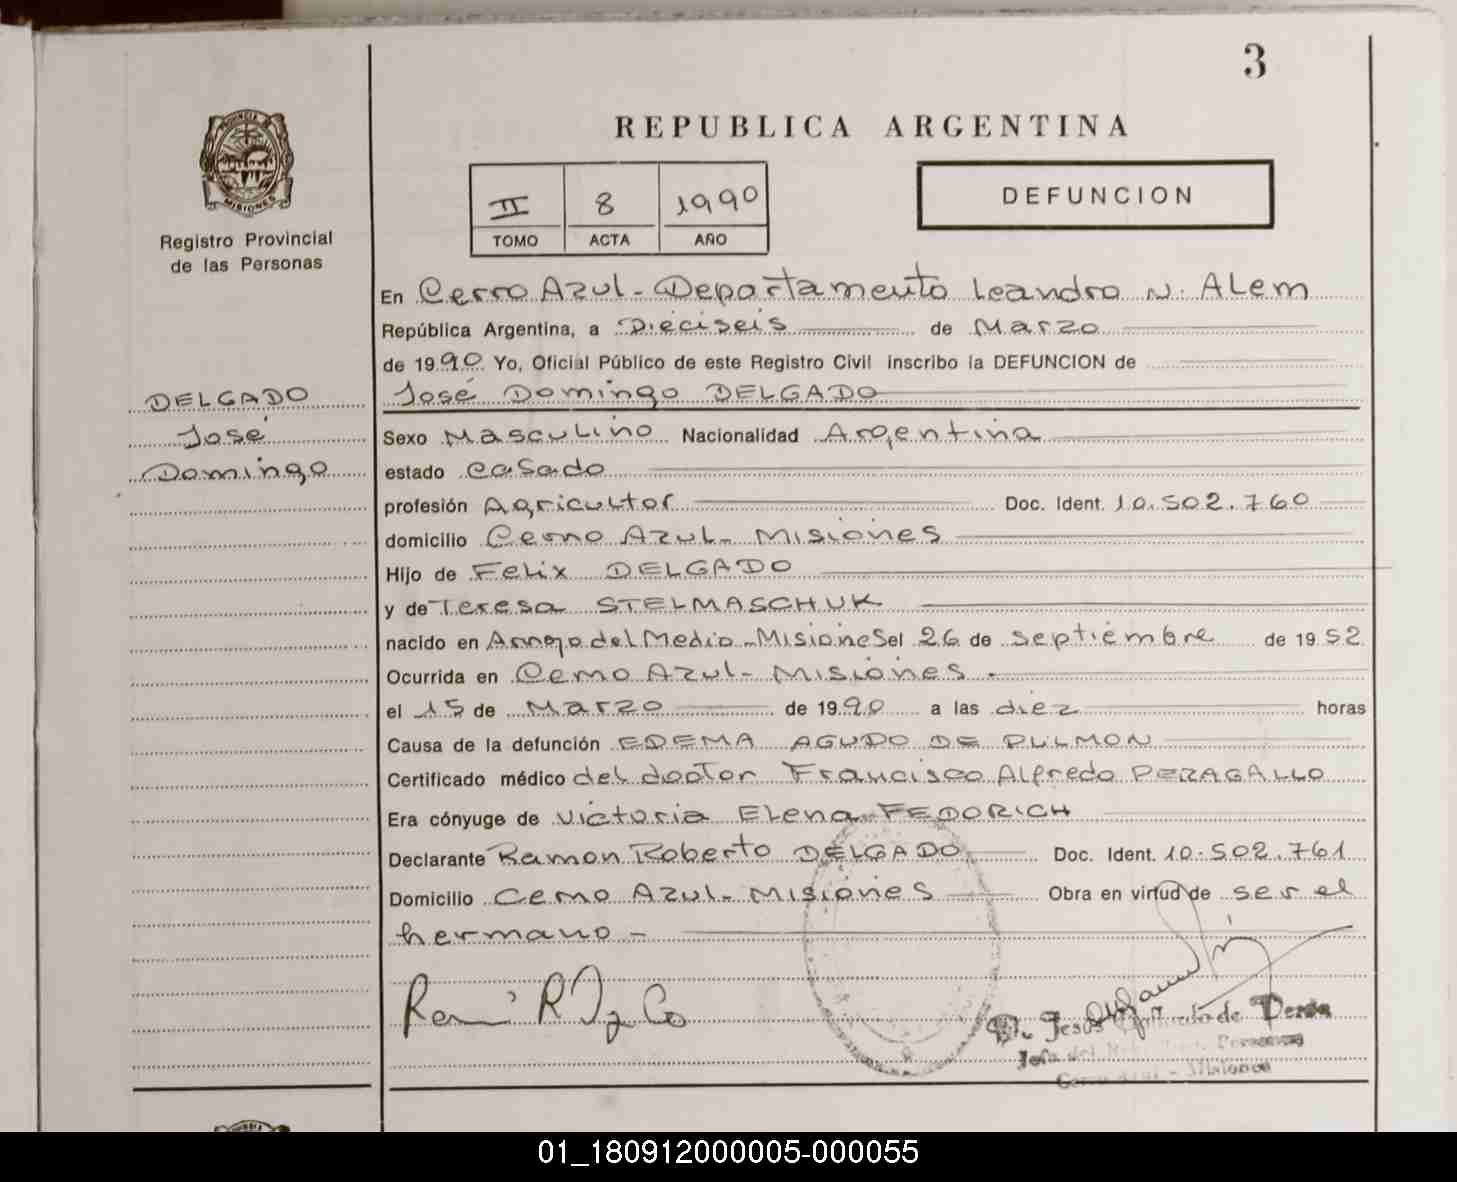 3
REPUBLICA ARGENTINA
PROVINCIA DE
MISIONES
II 8 1990
TOMO ACTA AÑO
DEFUNCION
Registro Provincial
de las Personas
DELGADO
José
Domingo
En Cerro Azul - Departamento Leandro N. Alem
República Argentina, a Dieciseis de Marzo
de 1990 Yo, Oficial Público de este Registro Civil inscribo la DEFUNCION de
José Domingo DELGADO
Sexo Masculino Nacionalidad Argentina
estado casado
profesión Agricultor Doc. Ident. 10.502.760
domicilio Cerro Azul - Misiones
Hijo de Felix DELGADO
y de Teresa STELMASCHUK
nacido en Arroyo del Medio - Misiones el 26 de septiembre de 1952
Ocurrida en Cerro Azul - Misiones.
el 15 de Marzo de 1990 a las diez horas
Causa de la defunción EDEMA AGUDO DE PULMON
Certificado médico del doctor Francisco Alfredo PERAGALLO
Era cónyuge de Victoria Elena FEDORICH
Declarante Ramon Roberto DELGADO Doc. Ident. 10.502.761
Domicilio Cerro Azul - Misiones Obra en virtud de ser el
hermano -
Jesús de
Jefa del
Cerro Azul - Misiones
01_180912000005-000055